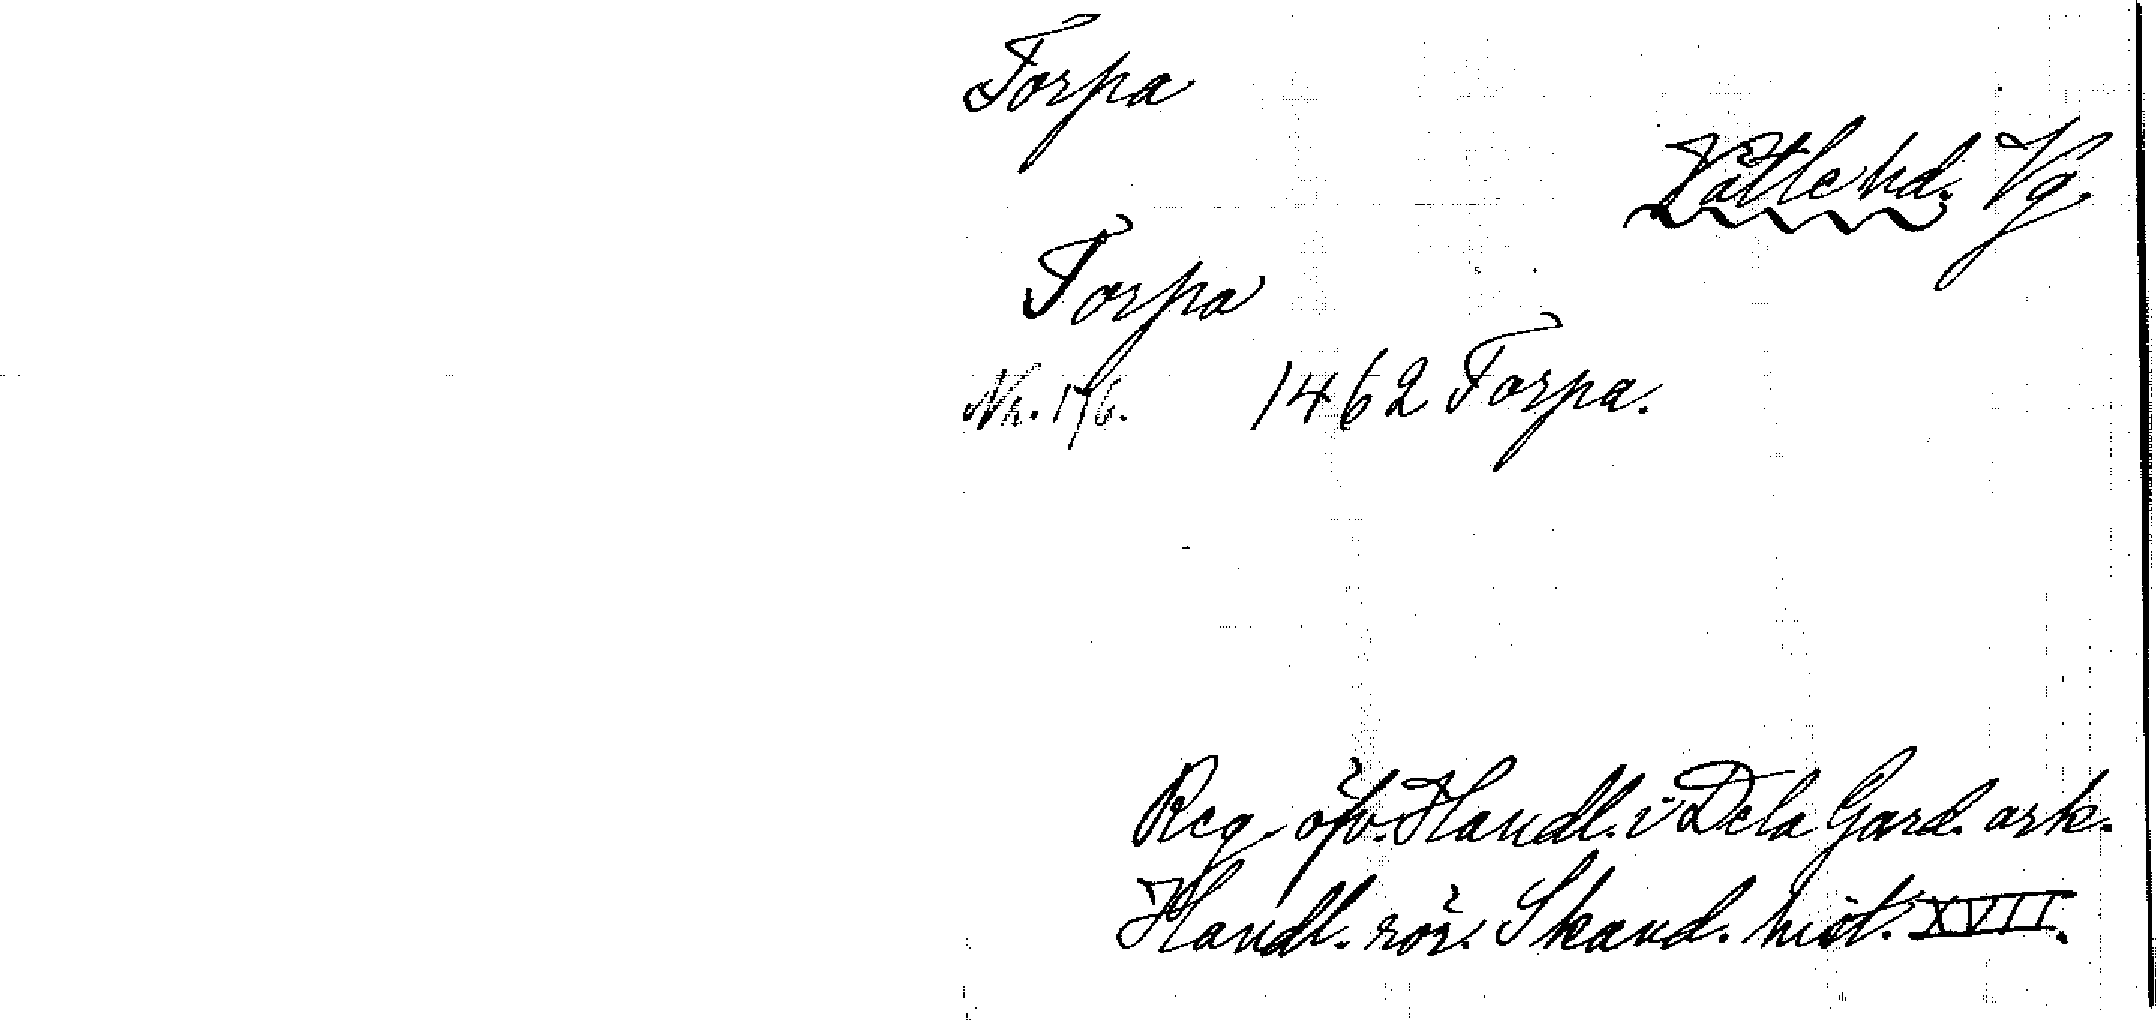 Torpa
Vättle hd. Vg.
Torpa
Nr. 176. 1462 Torpa.
Reg. öfv. Handl. i De la Gard. ark.
Handl. rör. Skand. hist. XVII.